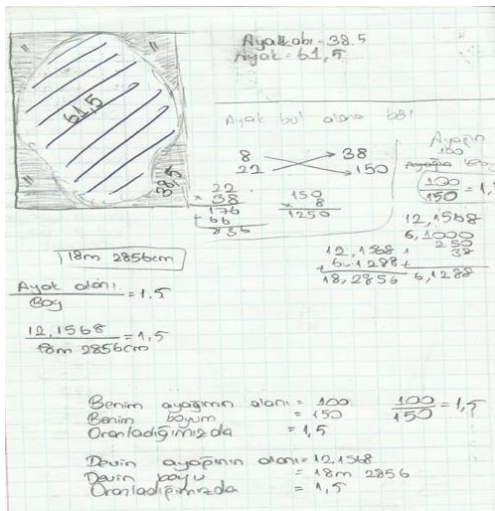 Ayakkabı = 38.5
Ayak = 61,5
61,5
38,5
Ayak bul alana böl
8 38
22 150
22
x 38
176
+ 66
836
150
x 8
1250
Ayağın
100
100
150 = 1,
12,1568
6,1000
250
38
6,1288
12,1568
+ 6,1288
18,2856
18m 2856cm
Ayak alanı
Boy = 1.5
12,1568
18m 2856cm = 1,5
Benim ayağımın alanı = 100
Benim boyum = 150
Oranladığımızda = 1,5
100
150 = 1,5
Devin ayağının alanı = 12,1568
Devin boyu = 18m 2856
Oranladığımızda = 1,5